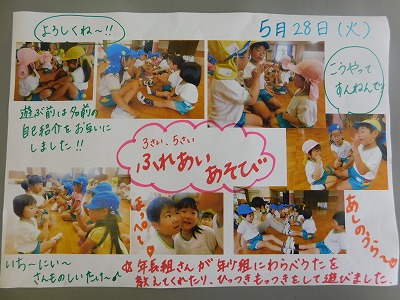 よろしくね〜!!
5月28日(火)
こうやって
すんねんで!!
遊ぶ前は名前の
自己紹介をお互いに
しました!!
3さい、5さい
ふれあい
あそび
あしのうら〜♡
いち〜にぃ〜
さんものしいたけ〜♪
年長組さんが年少組にわらべうたを
教えてくれたり、ひっつきもっつきをして遊びました。